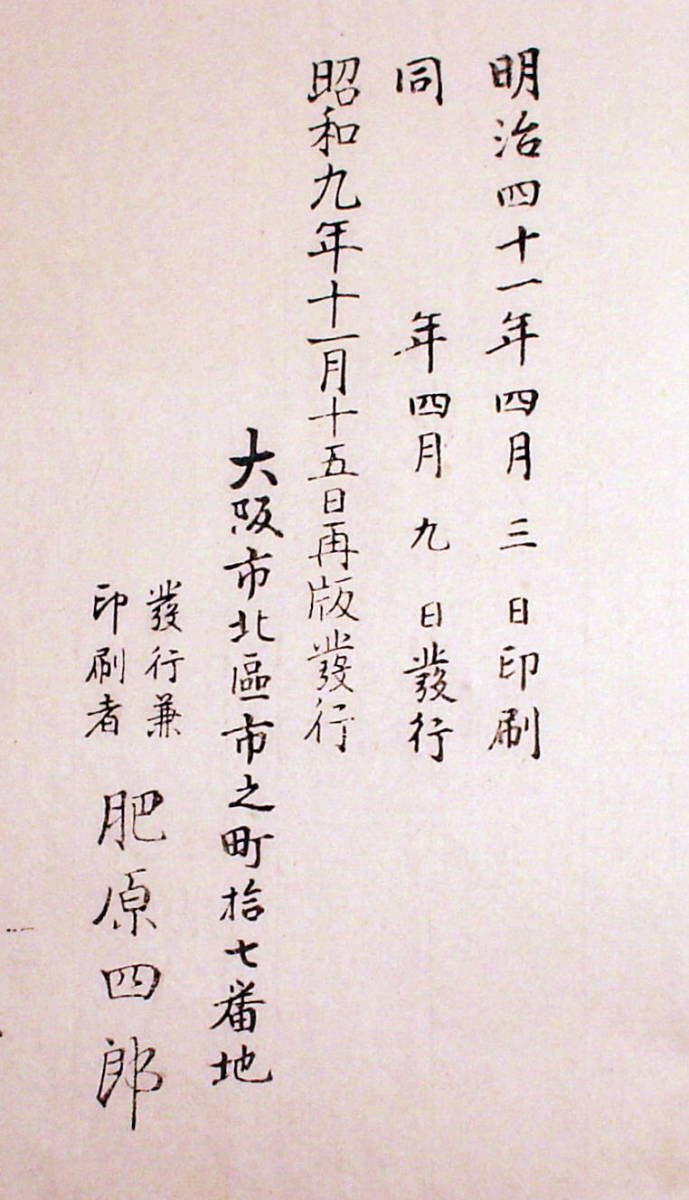 明治四十一年四月三日印刷
同年四月九日發行
昭和九年十一月十五日再版發行
大阪市北區市之町拾七番地
發行兼
印刷者
肥原四郎